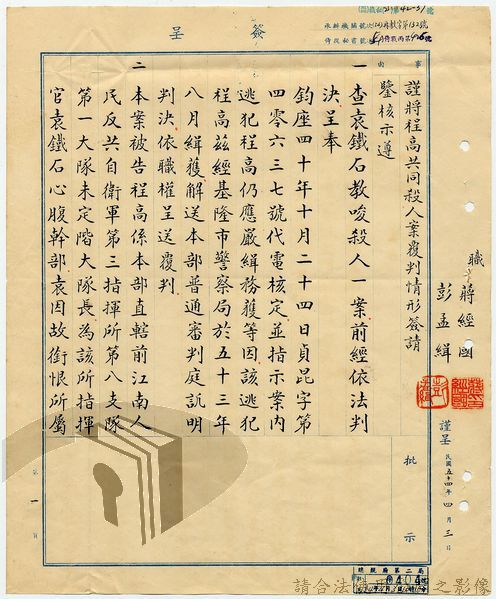 簽呈
事由
謹將程高共同殺人案覆判情形簽請
鑒核示遵
一 查袁鐵石教唆殺人一案前經依法判
決呈奉
鈞座四十年十月二十四日貞昆字第
四零六三七號代電核定並指示案內
逃犯程高仍應嚴緝務獲等因該逃犯
程高茲經基隆市警察局於五十三年
八月緝獲解送本部普通審判庭訊明
判決依職權呈送覆判
二 本案被告程高係本部直轄前江南人
民反共自衛軍第三指揮所第八支隊
第一大隊未定階大隊長為該所指揮
官袁鐵石心腹幹部袁因故銜恨所屬
職
蔣經國
彭孟緝
謹呈 民國五十四年四月三日
批示
第一頁
總統府第二局
0404
請合法使用 之影像